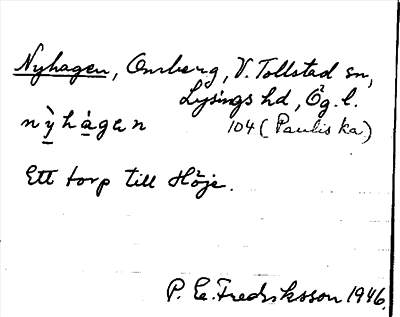 Nyhagen, Omberg, V. Tollstad sn,
Lysings hd, Ög. l.
nỳhágen 104 (Pauliska)
Ett torp till Höje.
P. E. Fredriksson 1946.